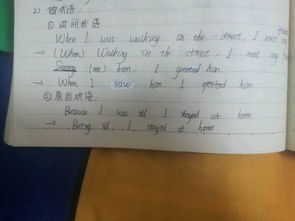 2) 做状语:
① 时间状语
When I was walking on the street, I met
→ (When) Walking in the street. I met my
Seeing (me) him. I greeted him.
→ When I saw him I greeted him
② 原因状语:
Because I was ill. I stayed at home
→ Being ill. I stayed at home